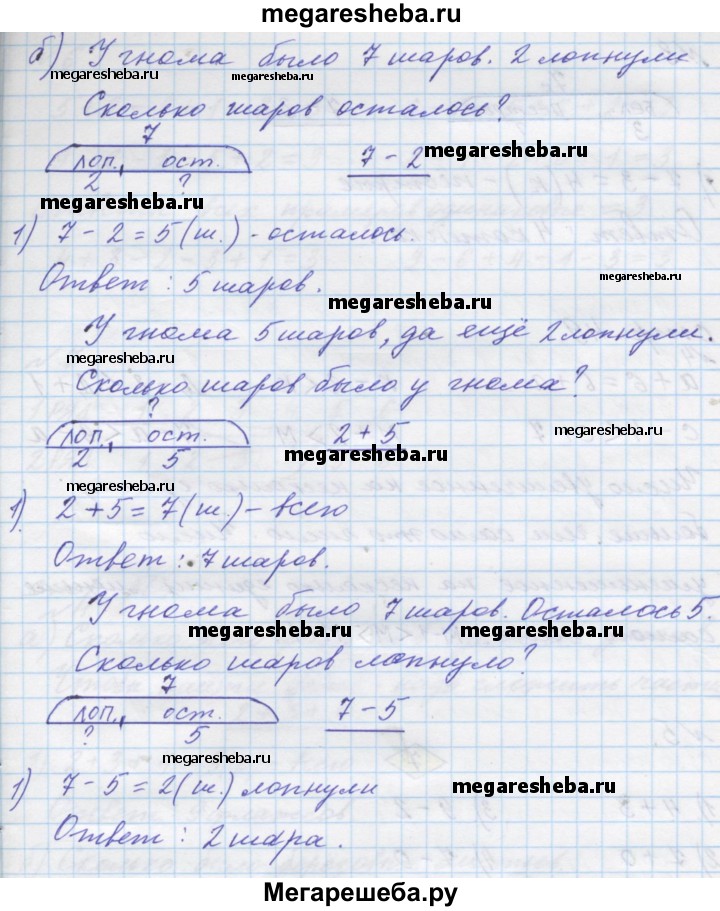 megaresheba.ru
б) У гнома было 7 шаров. 2 лопнули
megaresheba.ru megaresheba.ru
Сколько шаров осталось?
7
лоп. ост. 7 - 2 megaresheba.ru
2 ?
megaresheba.ru
1) 7 - 2 = 5 (ш.) - осталось.
megaresheba.ru
Ответ: 5 шаров.
megaresheba.ru
У гнома 5 шаров, да ещё 2 лопнули.
megaresheba.ru megaresheba.ru
Сколько шаров было у гнома?
?
лоп. ост. 2 + 5 megaresheba.ru
2 5 megaresheba.ru
megaresheba.ru
1) 2 + 5 = 7 (ш.) - всего
Ответ: 7 шаров.
У гнома было 7 шаров. Осталось 5.
megaresheba.ru megaresheba.ru
Сколько шаров лопнуло?
7
лоп. ост. 7 - 5
? 5
megaresheba.ru
1) 7 - 5 = 2 (ш.) лопнули
megaresheba.ru
Ответ: 2 шара.
Мегарешеба.ру